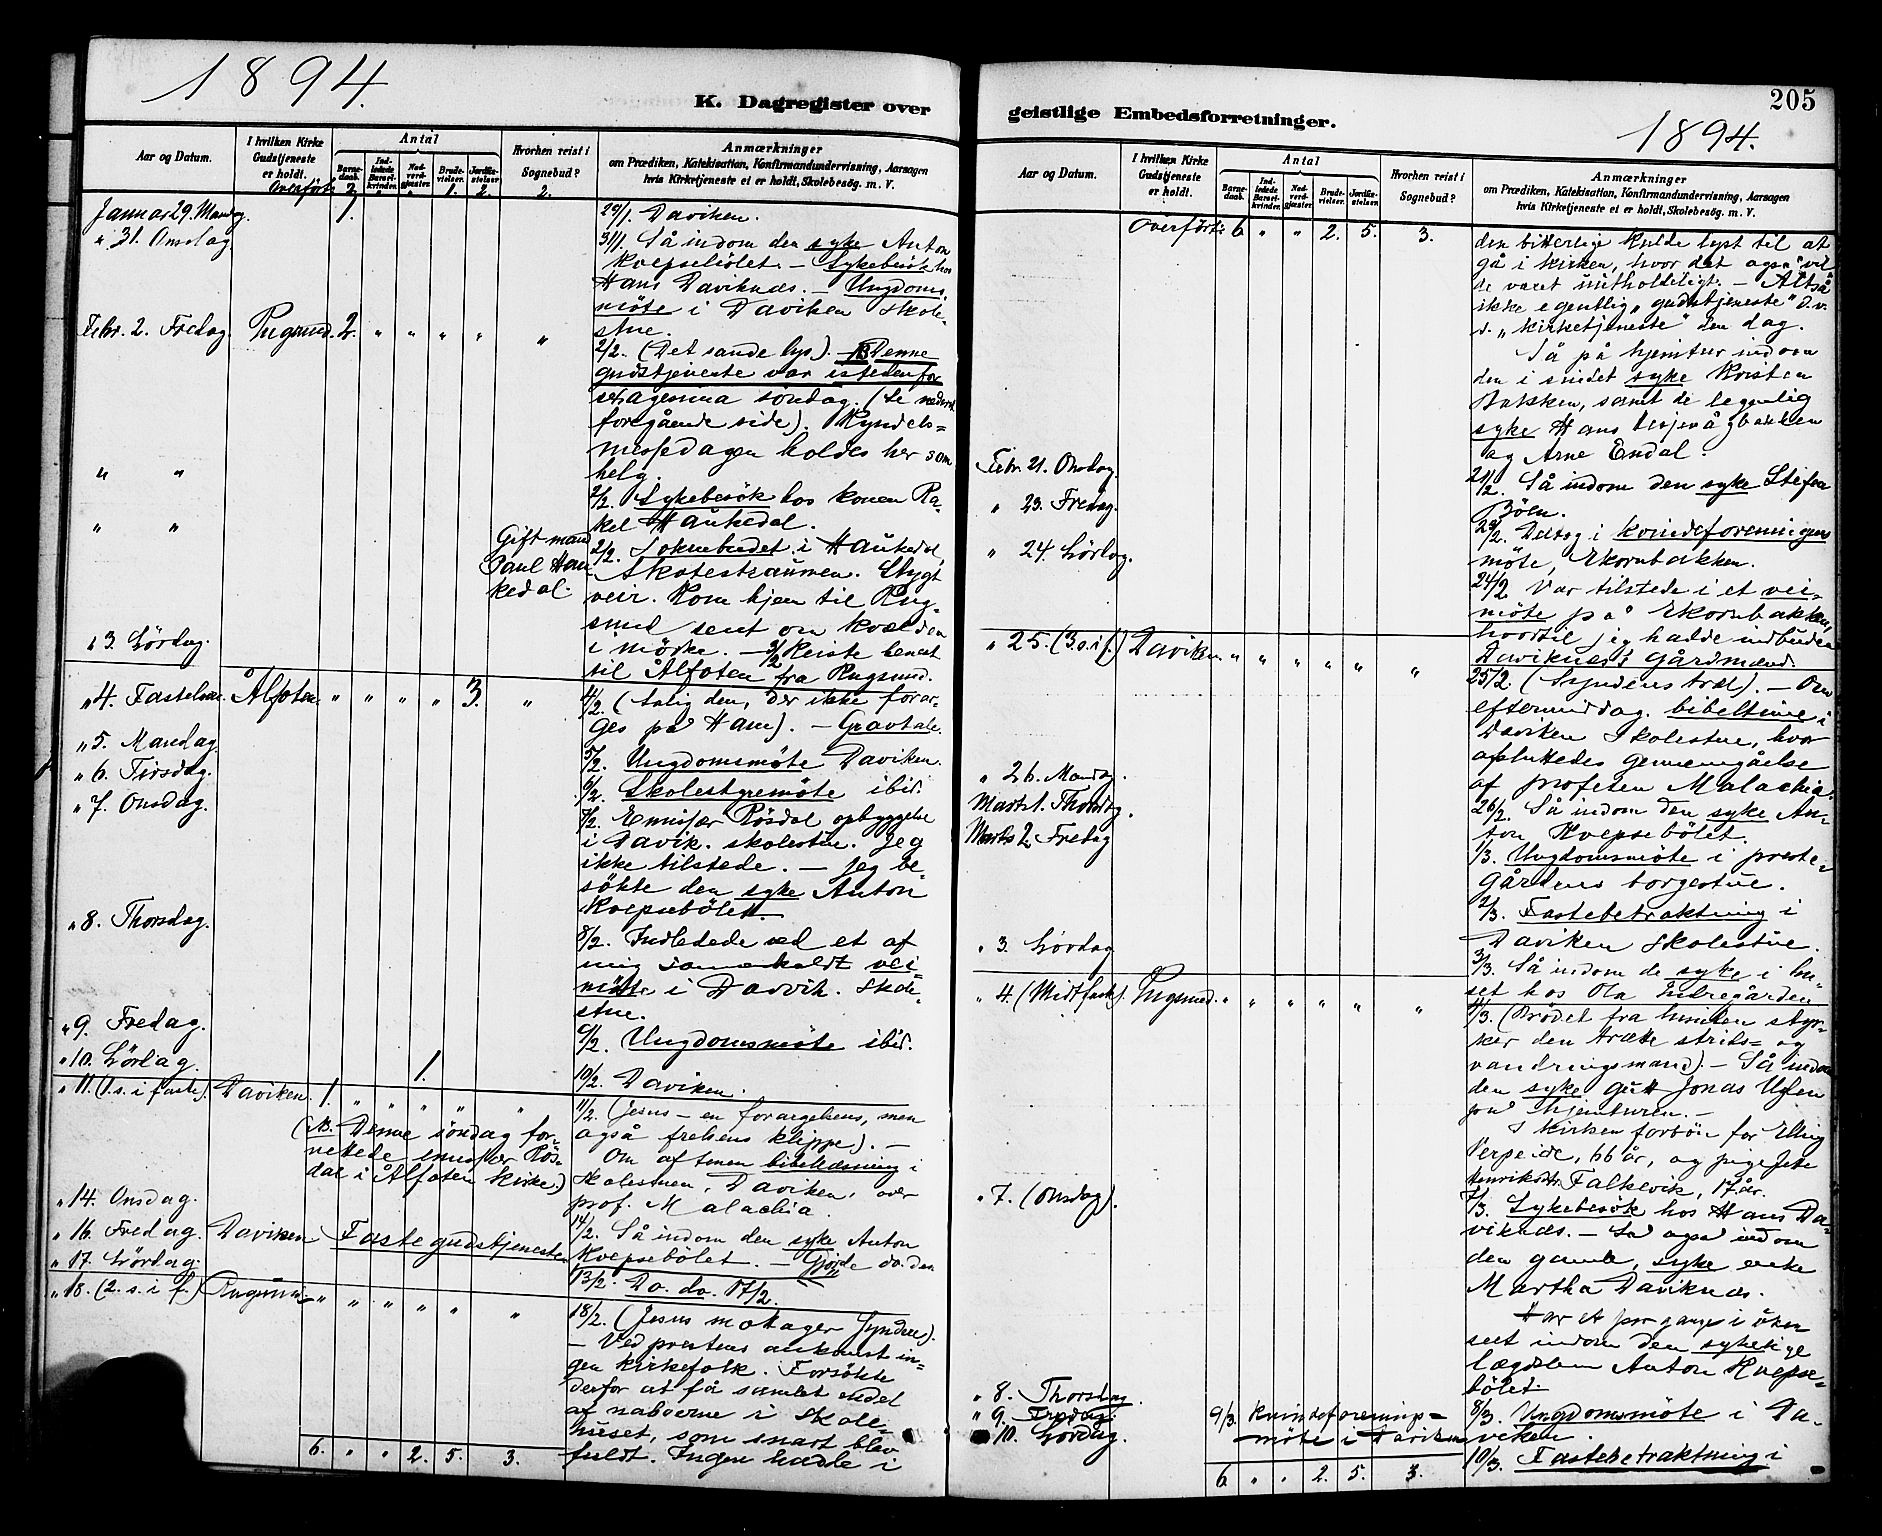 1894.
K. Dagregister over
Aar og Datum.
I hvilken Kirke
Gudstjeneste
er holdt.
Antal
Barne-
daab.
Ind-
ledede
Barsel-
kvinder.
Nad-
verd-
gjester.
Brude-
vielser.
Jordfæ-
stelser.
Hvorhen reist i
Sognebud?
Anmærkninger
om Prædiken, Katekisation, Konfirmandundervisning, Aarsagen
hvis Kirketjeneste ei er holdt, Skolebesøg. m. V.
Overført: 2. " " 1. 2. 2.
Januar 29. Mandag. 1. 29/1. Daviken.
" 31. Onsdag 31/1. Så indom den syke Anton
Kvepsebölet. — Sykebesök hos
Hans Daviknæs. — Ungdoms
möte i Daviken skole-
stue.
Febr. 2. Fredag. Rugsund. 2. " " " " "
2/2. (Det sande lys). NB Denne
gudstjeneste var istedenfor
sexagesima söndag. (Se nederst
foregående side). Kyndels=
messedagen holdes her som
helg.
" " 2/2. Sykebesök hos konen Ra-
kel Haukedal.
" " Gift mand
Paul Hau
kedal.
2/2. Soknebudet i Haukedal,
Skatestraumen. Stygt
veir. Kom hjem til Rug-
sund sent om kvælden
i mörke. — 3/2 Reiste benest
" 3. Lördag. til Ålfoten fra Rugsund.
" 4. Fastelavn. Ålfoten. " " " " 3. " 4/2. (Salig den, der ikke forar-
ges på Ham). — Gravtale.
" 5. Mandag. 5/2. Ungdomsmöte Daviken.
" 6. Tirsdag. 6/2. Skolestyremöte ibid.
" 7. Onsdag. 7/2. Emissær Rösdal opbyggelse
i Davik. skolestue. Jeg
ikke tilstede. — Jeg be-
sökte den syke Anton
Kvepsebölet.
" 8. Thorsdag. 8/2. Indledede ved et af
mig samenkaldt vei-
möte i Davik. skole-
stue.
" 9. Fredag. 9/2. Ungdomsmöte ibid.
" 10. Lördag. 1. 10/2. Daviken.
" 11. (1. s. i faste). Daviken. 1. " " " " " 11/2. (Jesus — en forargelsens, men
også frelsens klippe). —
(NB. Denne söndag for-
rettede emissær Rös-
dal i Ålfoten kirke.)
Om aftenen bibellæsning i
skolestuen, Daviken, over
prof. Malachia.
" 14. Onsdag. 14/2. Så indom den syke Anton
" 16. Fredag. Daviken Fastegudstjeneste. Kvepsebölet. — Gjorde do. den
" 17. Lördag. 13/2. Do. do. 17/2.
" 18. (2. s. i f.) Rugsund " " " " " " 18/2. (Jesus motager Syndere).
— Ved prestens ankomst in-
gen kirkefolk. Forsökte
derfor at få samlet endel
af naboerne i skole-
huset, som snart blev
fuldt. Ingen hadde i
6. " " 2. 5. 3.
205
geistlige Embedsforretninger.
1894.
Aar og Datum.
I hvilken Kirke
Gudstjeneste
er holdt.
Antal
Barne-
daab.
Ind-
ledede
Barsel-
kvinder.
Nad-
verd-
gjester.
Brude-
vielser.
Jordfæ-
stelser.
Hvorhen reist i
Sognebud?
Anmærkninger
om Prædiken, Katekisation, Konfirmandundervisning, Aarsagen
hvis Kirketjeneste ei er holdt, Skolebesøg. m. V.
Overfört: 6. " " 2. 5. 3.
den bitterlige kulde lyst til at
gå i kirken, hvor det også vil-
de været uutholdeligt. — Altså
ikke egentlig "gudstjeneste" d.v.
s. "kirketjeneste" den dag.
Så på hjemtur indom
den i sindet syke Kristen
Bakken, samt de legemlig
syke Hans
og Arne Endal.
Febr. 21. Onsdag. 21/2. Så indom den syke Stefen
Böen.
" 23. Fredag. 23/2. Deltog i kvindeforeningens
möte, Ekornbakken.
" 24. Lördag. 24/2 Var tilstede i et vei-
möte på Ekornbakken,
hvortil jeg hadde indbuden
Daviknæs's gårdmænd.
" 25. (3. s. i f.) Daviken. " " " " " " 25/2. (Syndens træl). — Om
eftermiddag. bibeltime i
Daviken skolestue, hvor
afsluttedes gennemgåelse
af profeten Malachia.
" 26. Mandag. 26/2. Så indom den syke An-
ton Kvepsebölet.
Marts 1. Thorsdag. 1/3. Ungdomsmöte i preste-
gårdens borgestue.
Marts 2. Fredag 2/3. Fastebetraktning i
Daviken skolestue.
" 3. Lördag 3/3. Så indom de syke i hu-
set hos Ola Indregården
" 4. (Midtfaste). Rugsund. " " " " " " 4/3. (Brödet fra himlen styr-
ker den trætte strids= og
vandringsmand). — Så indom
den syke gut Jonas
på hjemturen. —
I kirken forbön for Elling
Verpeide, 66 år, og pige
Henriksdtr. Falkevik, 17 år.
" 7. (Onsdag). 7/3. Sykebesök hos Hans Da-
viknæs. — Så også indom
den gamle, syke enke
Martha Daviknæs.
Har et par gange i uken
seet indom den sykelige
lægdslem Anton Kvepse-
bölet.
" 8. Thorsdag. 8/3. Ungdomsmöte i Da-
viken.
" 9. Fredag. 9/3. Kvindeforenings=
möte i Daviken
" 10. Lördag. 10/3. Fastebetraktning i
6 " " 2. 5. 3.